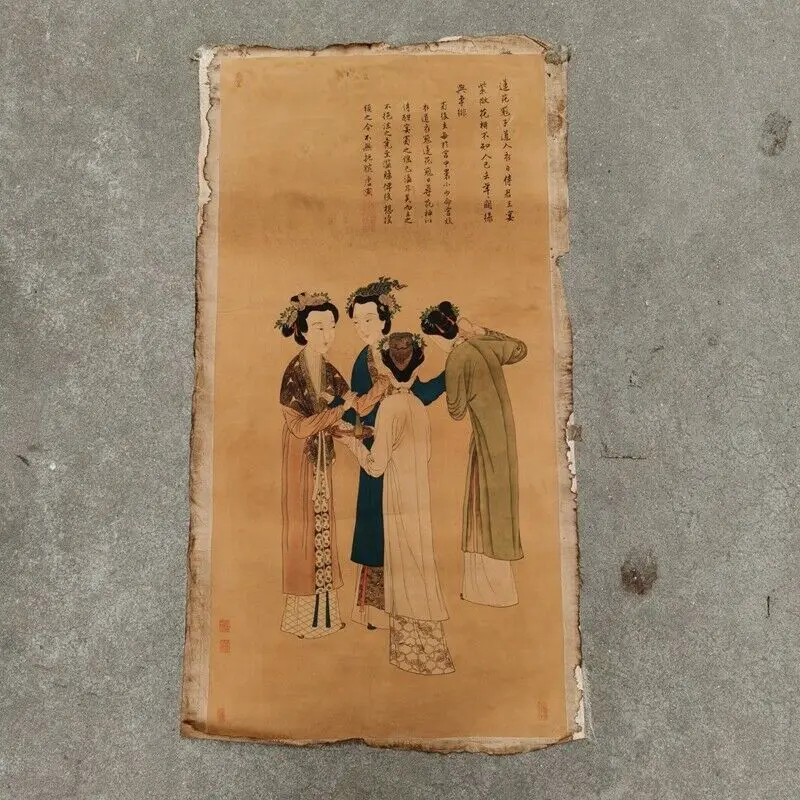 蓮花冠子道人衣日侍君王宴
紫微花柳不知人已去年年鬪綠
與爭緋
蜀後主每於宮中裹小巾命宮妓
衣道衣冠蓮花冠日尋花柳以
侍酣宴蜀之謠已溢耳矣而主之
不挹注之竟至濫觴俾後想搖
頭之令不無扼腕唐寅